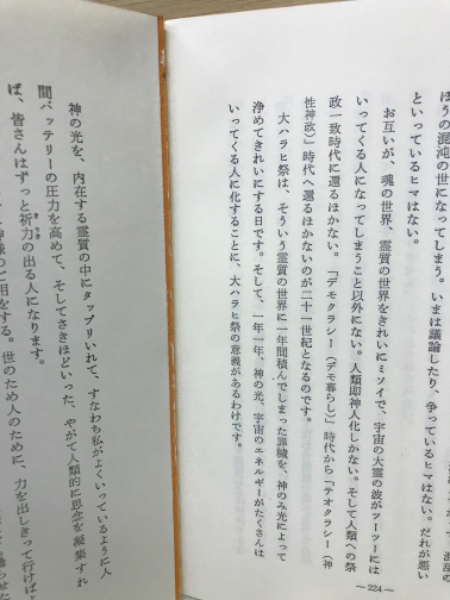 ほうの混沌の世になってしまう。いまは議論したり、争っているヒマはない。だれが悪い
といっているヒマはない。
お互いが、魂の世界、霊質の世界をきれいにミソイで、宇宙の大霊の波がツーツーには
いってくる人になってしまうこと以外にない。人類即神人化しかない。そして人類への祭
政一致時代に還るほかない。「デモクラシー（デモ暮らし）」時代から「テオクラシー（神
性神政）」時代へ還るほかないのが二十一世紀となるのです。
大ハラヒ祭は、そういう霊質の世界に一年間積んでしまった罪穢を、神のみ光によって
浄めてきれいにする日です。そして、一年一年、神の光、宇宙のエネルギーがたくさんは
いってくる人に化することに、大ハラヒ祭の意義があるわけです。
—224—
神の光を、内在する霊質の中にタップリいれて、すなわち私がよくいっているように人
間バッテリーの圧力を高めて、そしてさきほどいった、やがて人類的に思念を凝集すれ
ば、皆さんはずっと祈力の出る人になります。
きりき
ご用をする。世のため人のために、力を出しきって行けば